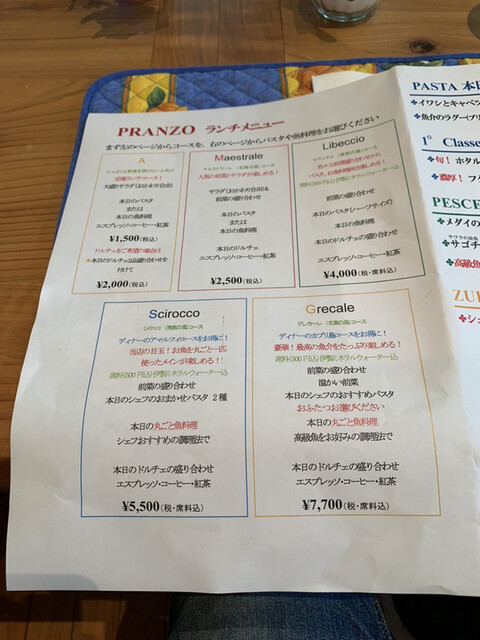 PRANZO ランチメニュー
まず左のページからコースを、右のページからパスタや魚料理をお選びください
A
定番ランチコース!
大盛サラダ(おかわり自由)
本日のパスタ
または
本日の魚料理
エスプレッソ・コーヒー・紅茶
¥1,500(税込)
ドルチェをご希望の場合は
本日のドルチェ2品盛り合わせを
付けて
¥2,000(税込)
Maestrale
人気の前菜とサラダが楽しめる!
サラダ(おかわり自由)&
前菜の盛り合わせ
本日のパスタ
または
本日の魚料理
本日のドルチェ
エスプレッソ・コーヒー・紅茶
¥2,500(税込)
Libeccio
色々な前菜盛り合わせから
パスタ、お魚料理両方楽しめる!
前菜の盛り合わせ
本日のパスタ(ハーフサイズ)
本日の魚料理
本日のドルチェの盛り合わせ
エスプレッソ・コーヒー・紅茶
¥4,000(税・席料込)
Scirocco
シロッコ(南東の風)コース
ディナーのアマルフィコースをお得に!
当店の目玉!お魚を丸ごと一匹
使ったメインが楽しめる!!
席料(500円込)伊勢ミネラルウォーター込
前菜の盛り合わせ
本日のシェフのおまかせパスタ 2種
本日の丸ごと魚料理
シェフおすすめの調理法で
本日のドルチェの盛り合わせ
エスプレッソ・コーヒー・紅茶
¥5,500(税・席料込)
Grecale
グレカーレ(北東の風)コース
ディナーのカプリ島コースをお得に!
豪華!最高の魚介をたっぷり楽しめる!
席料(500円込)伊勢ミネラルウォーター込
前菜の盛り合わせ
温かい前菜
本日のシェフのおすすめパスタ
おふたつお選びください
本日の丸ごと魚料理
高級魚をお好みの調理法で
本日のドルチェの盛り合わせ
エスプレッソ・コーヒー・紅茶
¥7,700(税・席料込)
PASTA 本日
イワシとキャベツ
魚介のラグー(ブリ
1° Classe
旬!ホタル
濃厚!フグ
PESCE
メダイの
サゴチ
高級魚
ZU